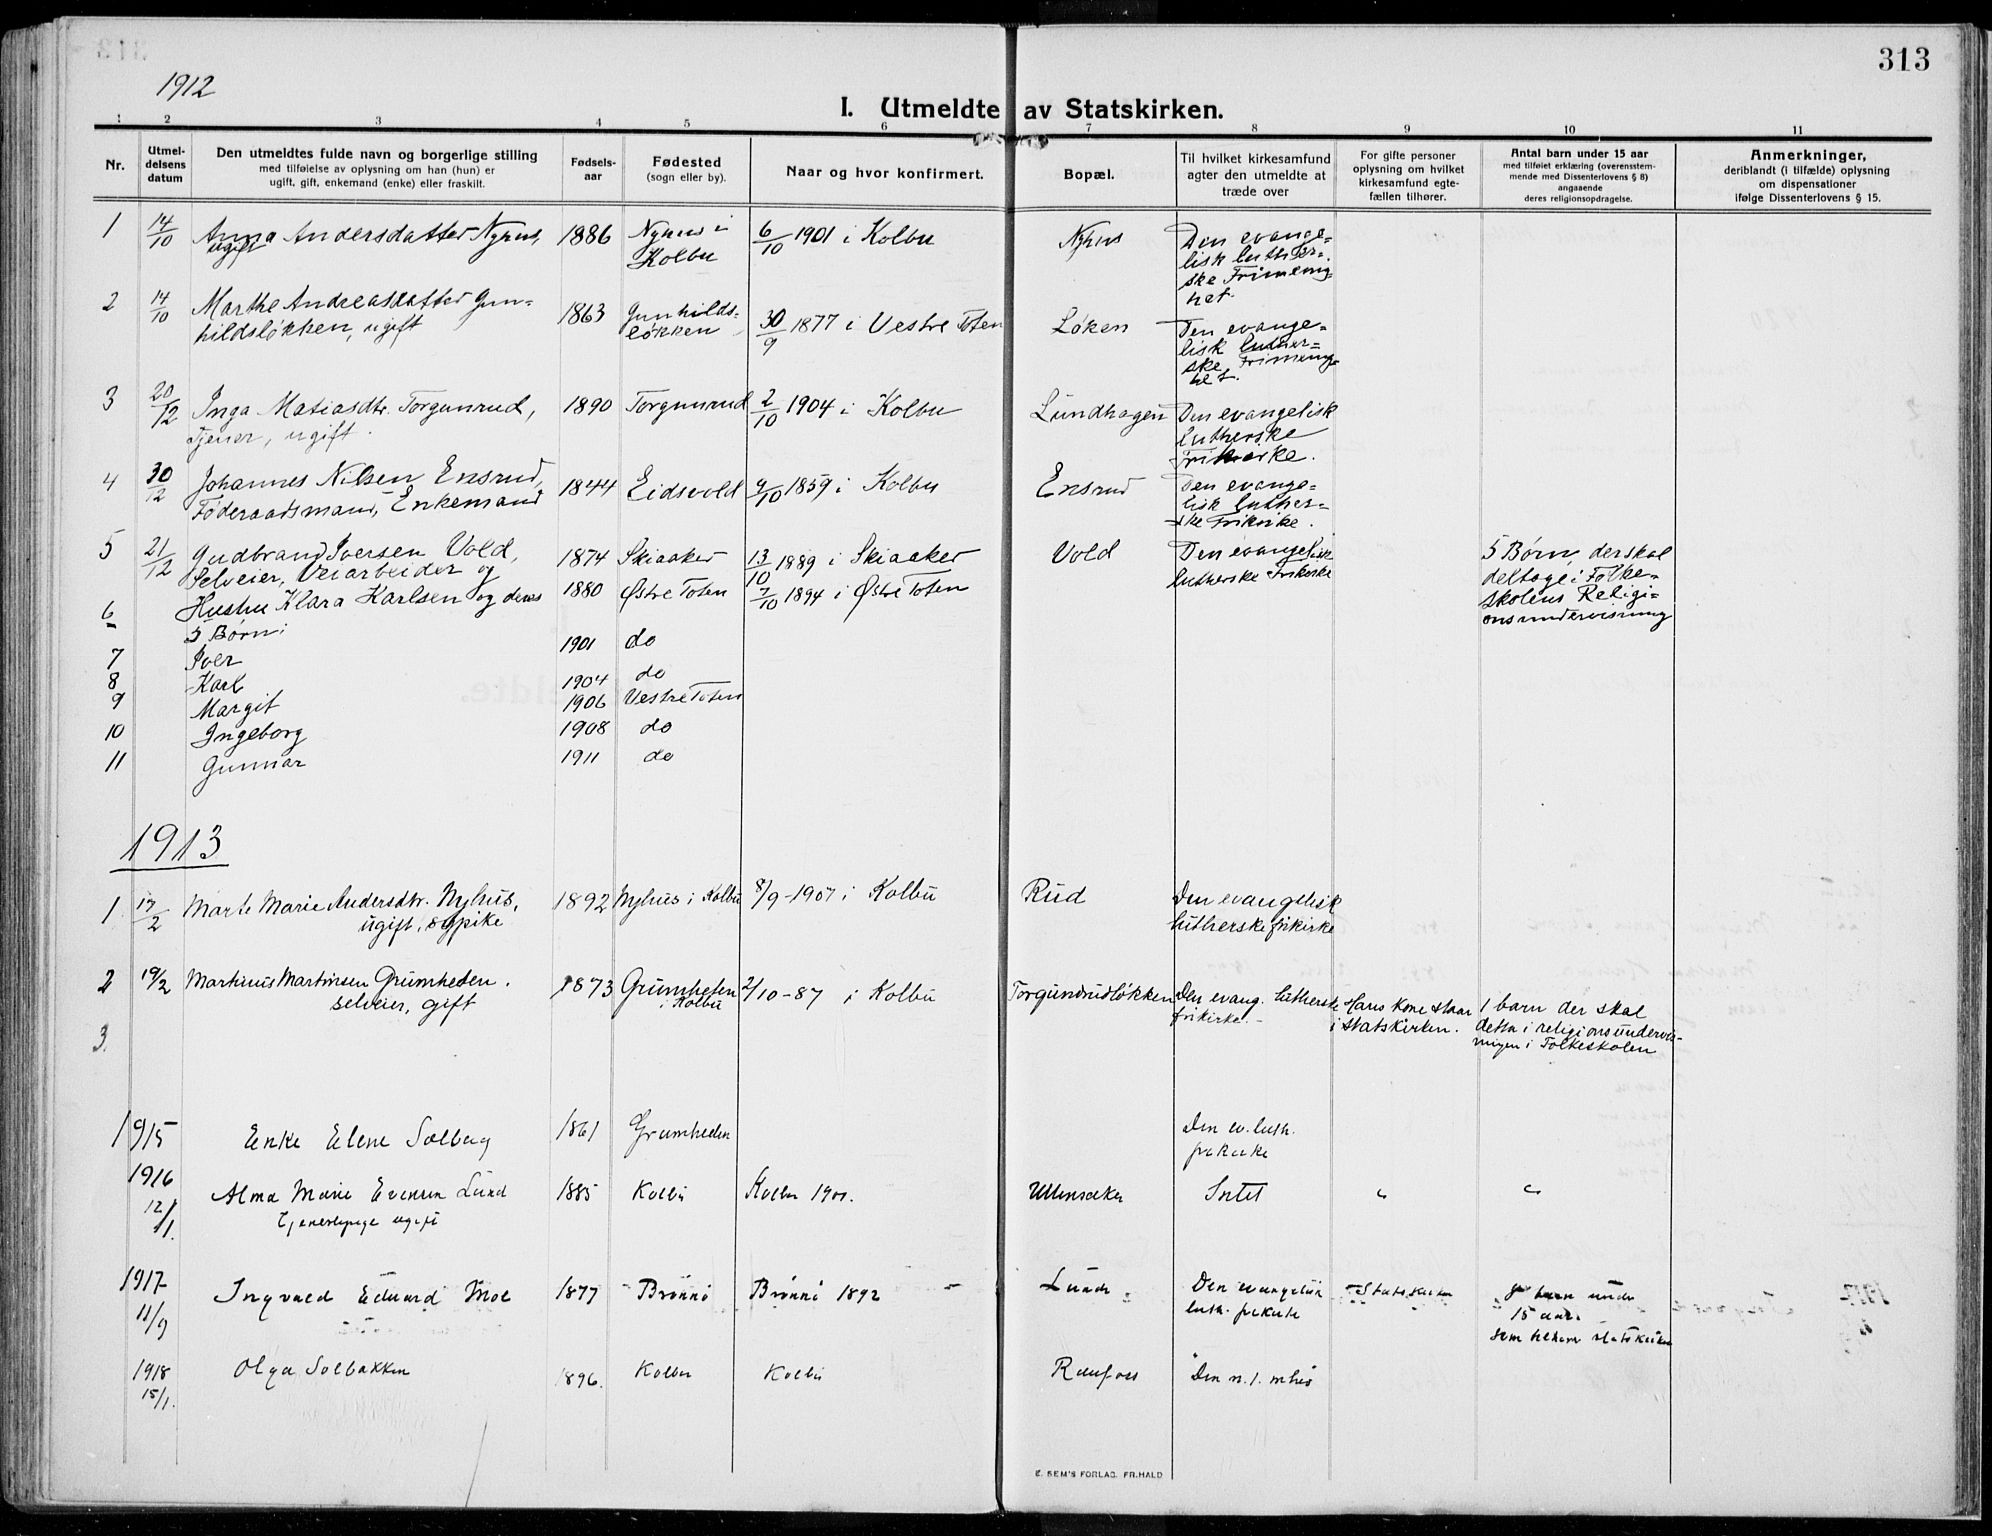 313
1912
I. Utmeldte av Statskirken.
1 2 3 4 5 6 7 8 9 10 11
Nr.
Utmel-
delsens
datum
Den utmeldtes fulde navn og borgerlige stilling
med tilføielse av oplysning om han (hun) er
ugift, gift, enkemand (enke) eller fraskilt.
Fødsels-
aar
Fødested
(sogn eller by).
Naar og hvor konfirmert.
Bopæl.
Til hvilket kirkesamfund
agter den utmeldte at
træde over
For gifte personer
oplysning om hvilket
kirkesamfund egte-
fællen tilhører.
Antal barn under 15 aar
med tilføiet erklæring (overensstem-
mende med Dissenterlovens § 8)
angaaende
deres religionsopdragelse.
Anmerkninger,
deriblandt (i tilfælde) oplysning
om dispensationer
ifølge Dissenterlovens § 15.
1 14/10 Anna Andersdatter Nyhus, 1886 Nyhus i 6/10 1901 i Kolbu Nyhus Den evange=
ugift Kolbu lisk luther=
ske Frimenig=
het.
2 14/10 Marthe Andreasdatter Gun= 1863 Gunhilds= 30/9 1877 i Vestre Toten Løken Den evange=
hildsløkken, ugift løkken lisk luther=
ske Frimenig=
het.
3 20/12 Inga Matiasdtr. Torgunrud, 1890 Torgunrud 2/10 1904 i Kolbu Lundhagen Den evangelisk
Tjener, ugift. lutherske
Frikirke.
4 30/12 Johannes Nilsen Ensrud, 1844 Eidsvold 9/10 1859 i Kolbu Ensrud Den evange=
Føderaadsmand, Enkemand lisk luther=
ske Frikirke.
5 21/12 Gudbrand Iversen Vold, 1874 Skiaaker 13/10 1889 i Skiaaker Vold Den evangelisk 5 Børn, der skal
Selveier, Veiarbeider og lutherske Frikirke deltage i Folke=
6 Hustru Klara Karlsen og deres 1880 Østre Toten 7/10 1894 i Østre Toten skolens Religi=
5 Børn: onsundervisning
7 Iver 1901 do
8 Karl 1904 do
9 Margit 1906 Vestre Toten
10 Ingeborg 1908 do
11 Gunnar 1911 do
1913
1 17/2 Marte Marie Andersdtr. Nyhus, 1892 Nyhus i Kolbu 8/9-1907 i Kolbu Rud Den evangelisk
ugift, sypike lutherske frikirke
2 19/2 Martinus Martinsen Grumheden. 1873 Grumheten 2/10-87 i Kolbu Torgunrudløkken Den evang. lutherske Hans kone staar 1 barn der skal
selveier, gift i Kolbu frikirke.- i statskirken. delta i religionsundervis-
ningen i Folkeskolen
3.
1915 Enke Elene Solberg 1861 Grumheden Den ev. luth.
frikirke
1916 Alma Marie Evensen Lund 1885 Kolbu Kolbu 1900. Ullensaker Intet " "
12/1. Tjenestepige ugift
1917 Ingvald Eduard Moe 1877 Brønnø Brønnø 1892 Lunde Den evangelisk Statskirken barn under
11/9 luth. frikirke 15 aar.
som tilhører statskirken
1918 Olga Solbakken 1896. Kolbu Kolbu Raufoss Den n. l.
15/1.
E. SEM'S FORLAG. FR.HALD